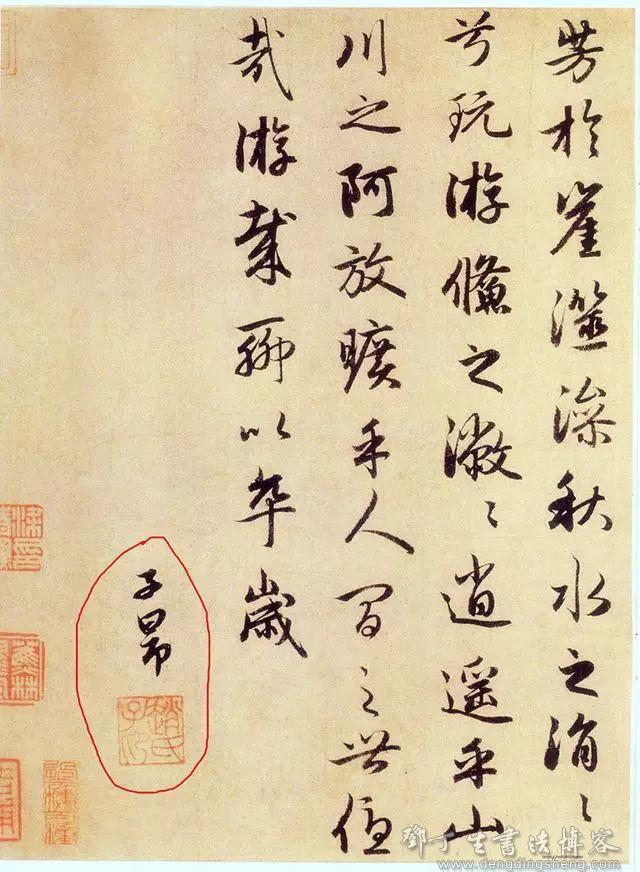 芳於崖澨澡秋水之涓〻
兮玩游鯈之潎〻逍遥乎山
川之阿放曠乎人間之世優
哉游哉聊以卒歲
子昂
趙氏子昂
鄧丁生書法博客
www.dengdingsheng.com